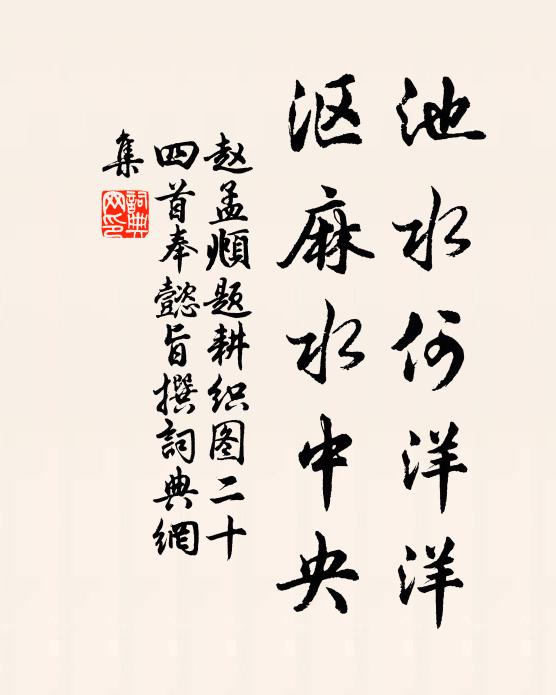 池水何洋洋
沤麻水中央
赵孟頫题耕织图二十
四首奉懿旨撰詞典網
集
詞典
网印